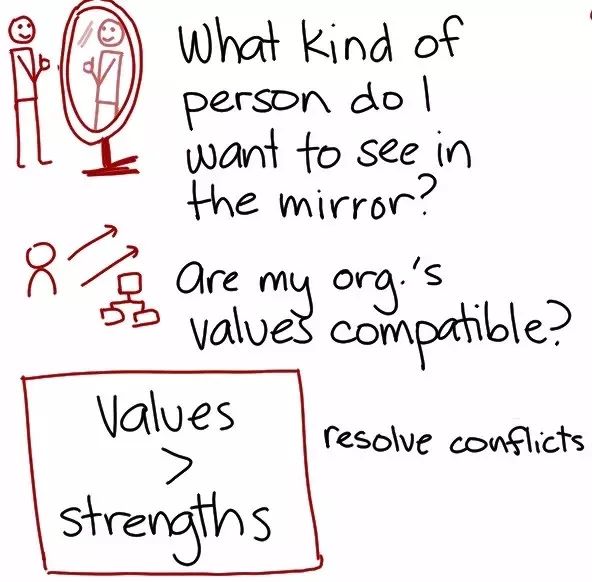 What kind of
person do I
want to see in
the mirror?
are my org.'s
values compatible?
Values
>
strengths
resolve conflicts